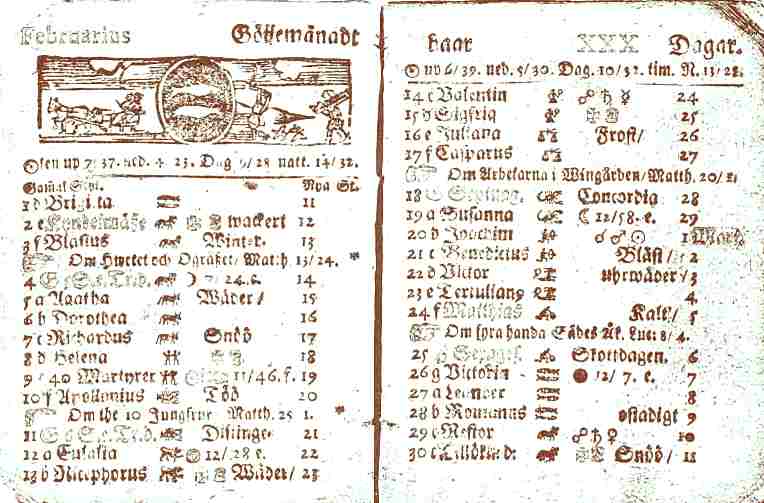 Februarius Götjemånadt
Solen up 7/37. ned. 4 23. Dag 9/28 natt. 14/32.
Gamal Styl. Nya St.
1 d Brigita 11
2 e Kyndelmässe wackert 12
3 f Blasius Winter. 13
Om Hwetet och Ogräset/ Matth. 13/24.
4 G 5.S.e.Tr.d. ☽ 7/24.e. 14
5 a Agatha Wäder/ 15
6 b Dorothea 16
7 c Richardus Snöö 17
8 d Helena 18
9 e 40 Martyrer 11/46.f. 19
10 f Apollonius Töö 20
Om the 10 Jungfrur Matth. 25 1.
11 G 6 S.e.Tr.d. Distinge. 21
12 a Eulalia 12/28 e. 22
13 b Nicephorus Wäder/ 23
haar XXX Dagar.
☉ up 6/39. ned. 5/30. Dag. 10/32. tim. N. 13/28.
14 c Valentin ☍ ♄ ☿ 24
15 d Sigfrid 25
16 e Juliana Frost/ 26
17 f Casparus 27
Om Arbetarna i Wingården/Matth. 20/1.
18 G Septuag. Concordia 28
19 a Susanna ☾ 12/58. e. 29
20 b Joachim ☌ ♂ ☉ 1 Mart.
21 c Benedictus Bläst/ 2
22 d Victor uhrwäder/ 3
23 e Tertulianus 4
24 f Matthias Kalt/ 5
Om fyra handa Sädes Åk. Luc: 8/4.
25 G Sexages. Skottdagen. 6
26 g Victorin ● 12/ 7. e. 7
27 a Leander 8
28 b Romanus ostadigt 9
29 c Nestor ☍ ♄ ♀ 10
30 Snöö/ 11